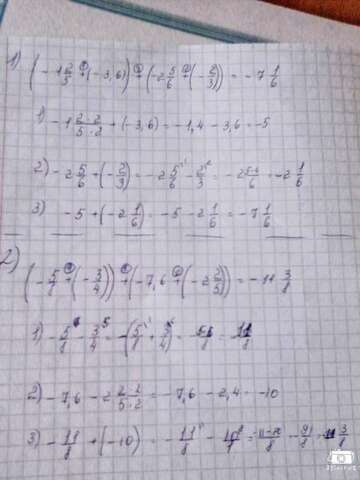 1) (-1 2/5 + (-3,6)) + (-2 5/6 + (-2/3)) = -7 1/6
1) -1 2·2/5·2 + (-3,6) = -1,4 - 3,6 = -5
2) -2 5/6 + (-2/3) = -2 5/6 - 2/3 = -2 5-4/6 = -2 1/6
3) -5 + (-2 1/6) = -5 - 2 1/6 = -7 1/6
2) (-5/8 + (-3/4)) + (-7,6 + (-2 2/5)) = -11 3/8
1) -5/8 - 3/4 = -(5/8 + 3/4) = 11/8
2) -7,6 - 2 2·2/5·2 = -7,6 - 2,4 = -10
3) -11/8 + (-10) = -11/8 - = - 91/8 = 3/8